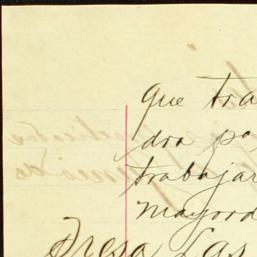 que tra
dra pa
trabajar
mayord
Presa Las